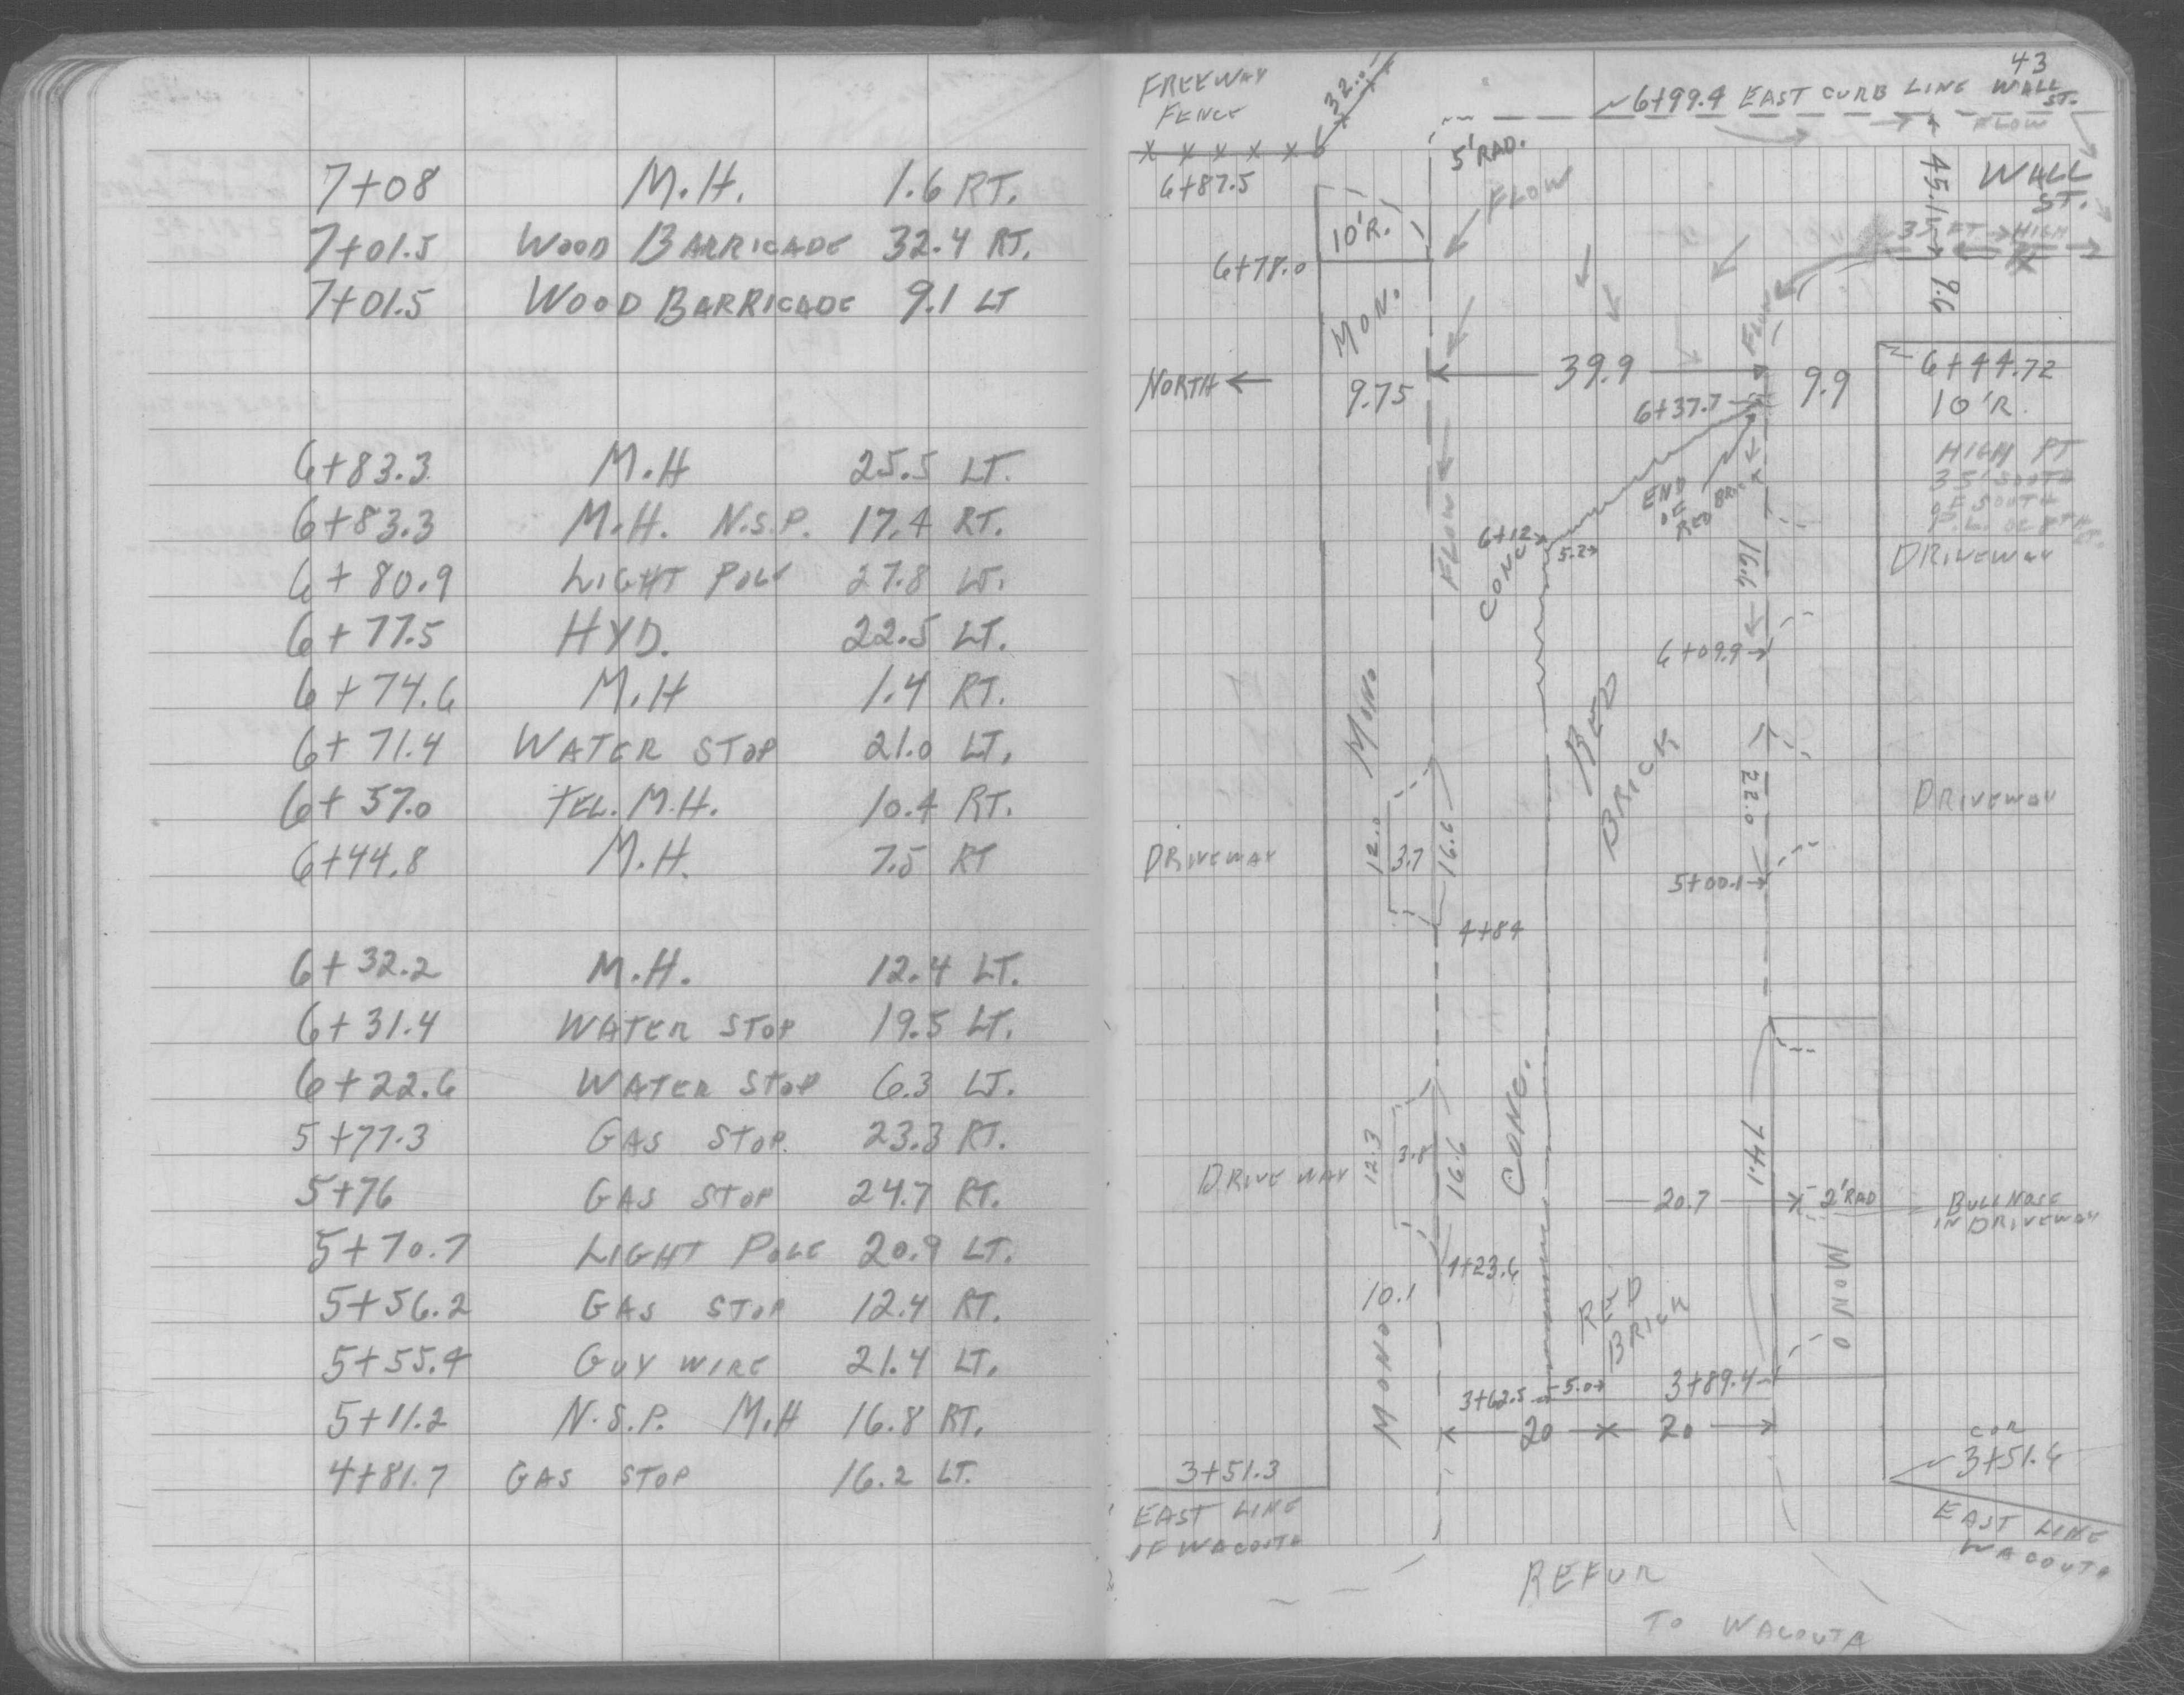 7+08 M.H. 1.6 RT.
7+01.5 WOOD BARRICADE 32.4 RT.
7+01.5 WOOD BARRICADE 9.1 LT
6+83.3 M.H 25.5 LT.
6+83.3 M.H. N.S.P. 17.4 RT.
6+80.9 LIGHT POLE 27.8 LT.
6+77.5 HYD. 22.5 LT.
6+74.6 M.H 1.4 RT.
6+71.4 WATER STOP 21.0 LT.
6+57.0 TEL. M.H. 10.4 RT.
6+44.8 M.H. 7.5 RT
6+32.2 M.H. 12.4 LT.
6+31.4 WATER STOP 19.5 LT.
6+22.6 WATER STOP 6.3 LT.
5+77.3 GAS STOP. 23.3 RT.
5+76 GAS STOP 24.7 RT.
5+70.7 LIGHT POLE 20.9 LT.
5+56.2 GAS STOP 12.4 RT.
5+55.4 GUY WIRE 21.4 LT.
5+11.2 N.S.P. M.H 16.8 RT.
4+81.7 GAS STOP 16.2 LT.
43
FREEWAY
FENCE
32.0
6+99.4 EAST CURB LINE WALL
ST.
FLOW
X X X X X
6+87.5
5' RAD.
FLOW
45.1
WALL
ST.
10'R.
6+78.0
35 FT HIGH
9.6
MON.
FLOW
NORTH
9.75
39.9
9.9
6+44.72
10'R.
6+37.7
HIGH PT
35' SOUTH
OF SOUTH
END
OF
RED BRICK
FLOW
6+12
CONC
5.2
16.6
DRIVEWAY
6+09.9
MONO
RED
BRICK
22.0
DRIVEWAY
DRIVEWAY
12.0
3.7
16.6
5+00.1
4+84
CONC.
74.1
DRIVE WAY
12.3
3.8
16.6
20.7
2' RAD
BULLNOSE
IN DRIVEWAY
MONO
1+23.6
10.1
MONO
RED
BRICK
3+62.5
5.0
3+89.4
20
20
COR
3+51.6
3+51.3
EAST LINE
OF WACOUTA
EAST LINE
WACOUTA
REFUR
TO WACOUTA